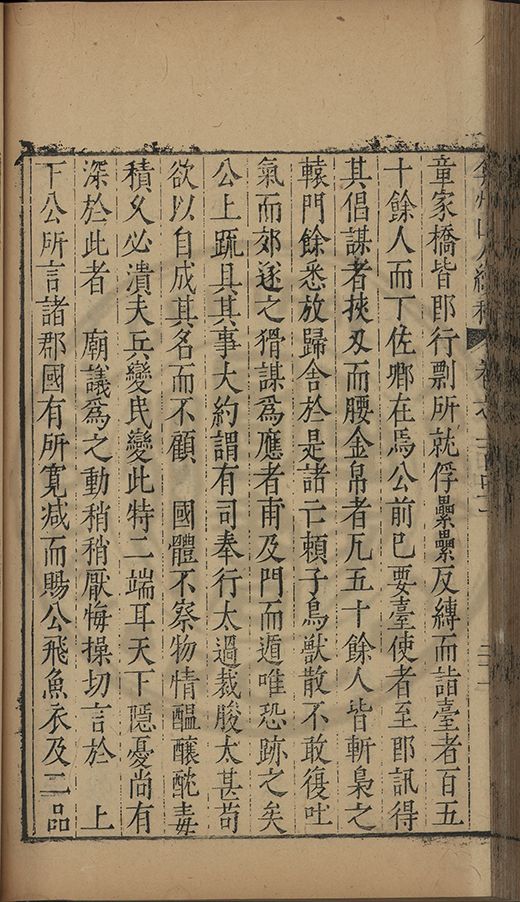 弇州山人續稿 卷之一百四十二
童家橋皆即行剽所就俘纍纍反縛而詣臺者百五
十餘人而丁佐卿在焉公前已要臺使者至即訊得
其倡謀者挾刃而腰金帛者凡五十餘人皆斬梟之
轅門餘悉放歸舍於是諸亡賴子鳥獸散不敢復吐
氣而郊遂之猾謀爲應者甫及門而遁唯恐跡之矣
公上䟽具其事大約謂有司奉行太過裁朘太甚苟
欲以自成其名而不顧 國體不察物情醖釀酖毒
積久必潰夫兵變民變此特二端耳天下隱憂尚有
深於此者 廟議爲之動稍稍厭悔操切言於 上
下公所言諸郡國有所寬減而賜公飛魚衣及二品